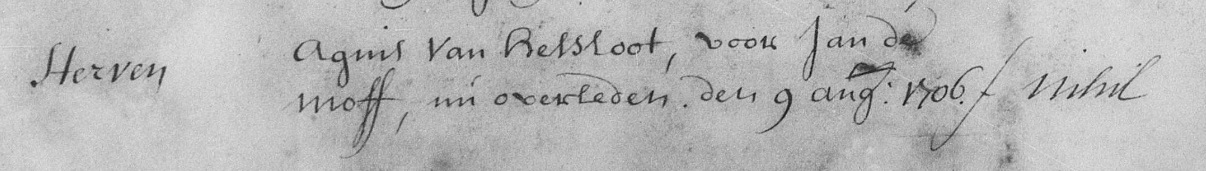 Herven
Agnis Van Helsloot, voor Jan de
moff, nu overleden. den 9 aug: 1706. f nihil